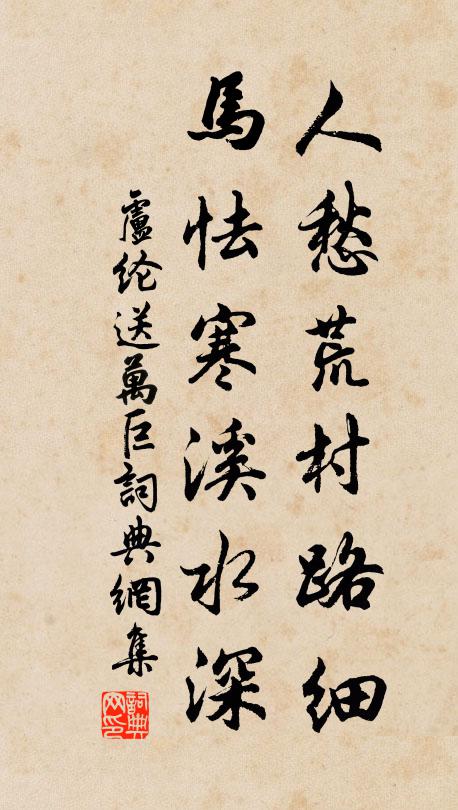 人愁荒村路细
馬怯寒溪水深
盧纶送萬巨詞典網集
詞典网印